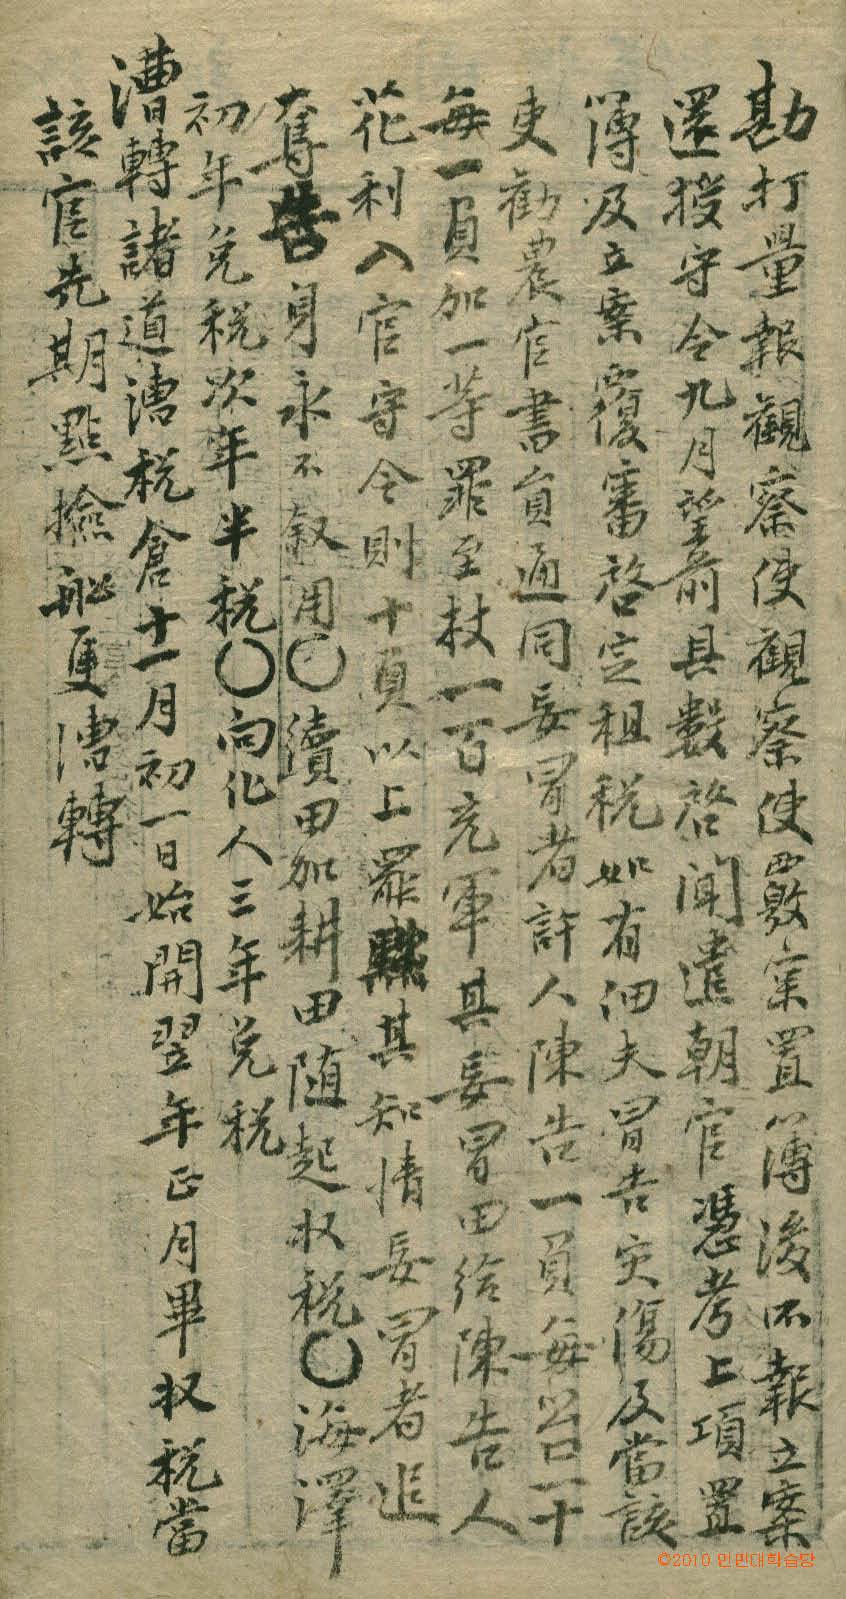 勘打量報觀察使觀察使覈宲置簿後所報立案
還授守令九月望前具數啓聞遣朝官憑考上項置
簿及立案覆審啓定租稅如有佃夫冒告灾傷及當該
吏勸農官書員通同妄冒者許人陳告一負每笞一十
每一負加一等罪至杖一百充軍其妄冒田給陳告人
花利入官守令則十負以上罷黜其知情妄冒者追
奪告身永不叙用〇續田加耕田随起収稅〇海澤
初年免稅次年半稅〇向化人三年免稅
漕轉諸道漕稅倉十一月初一日始開翌年正月畢収稅當
該官先期點撿船隻漕轉
©2010 인민대학습당